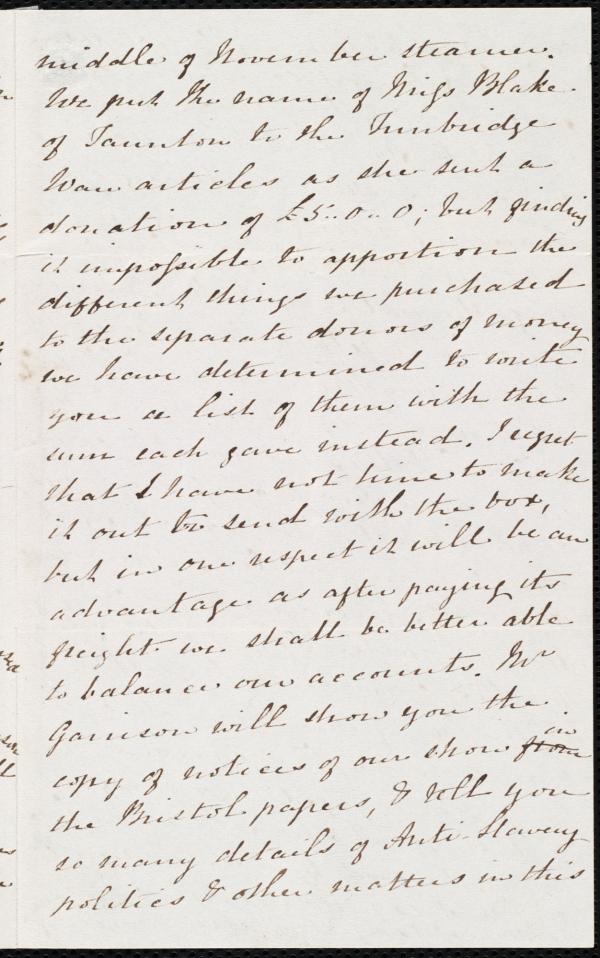 middle of November steamer.
We put the name of Miss Blake
of Taunton to the Tunbridge
Ware articles as she sent a
donation of £5..0..0; but finding
it impossible to apportion the
different things we purchased
to the separate donors of money
we have determined to write
you a list of them with the
sum each gave instead. I regret
that I have not time to make
it out to send with the box,
but in one respect it will be an
advantage as after paying its
freight we shall be better able
to balance our accounts. Mr
Garrison will show you the
copy of notices of our show from in
the Bristol papers, & tell you
so many details of Anti-Slavery
politics & other matters in this